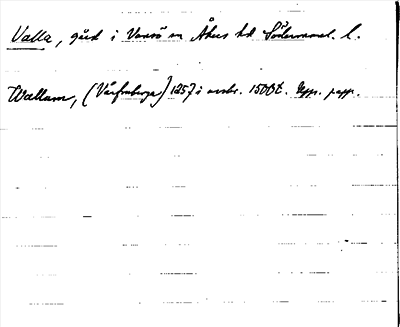 Valla, gård i Vansö sn Åkers hd Södermanl. l.
Wallum, (Vårfruberga) 1257 i avskr. 1500t. Upps. papp.